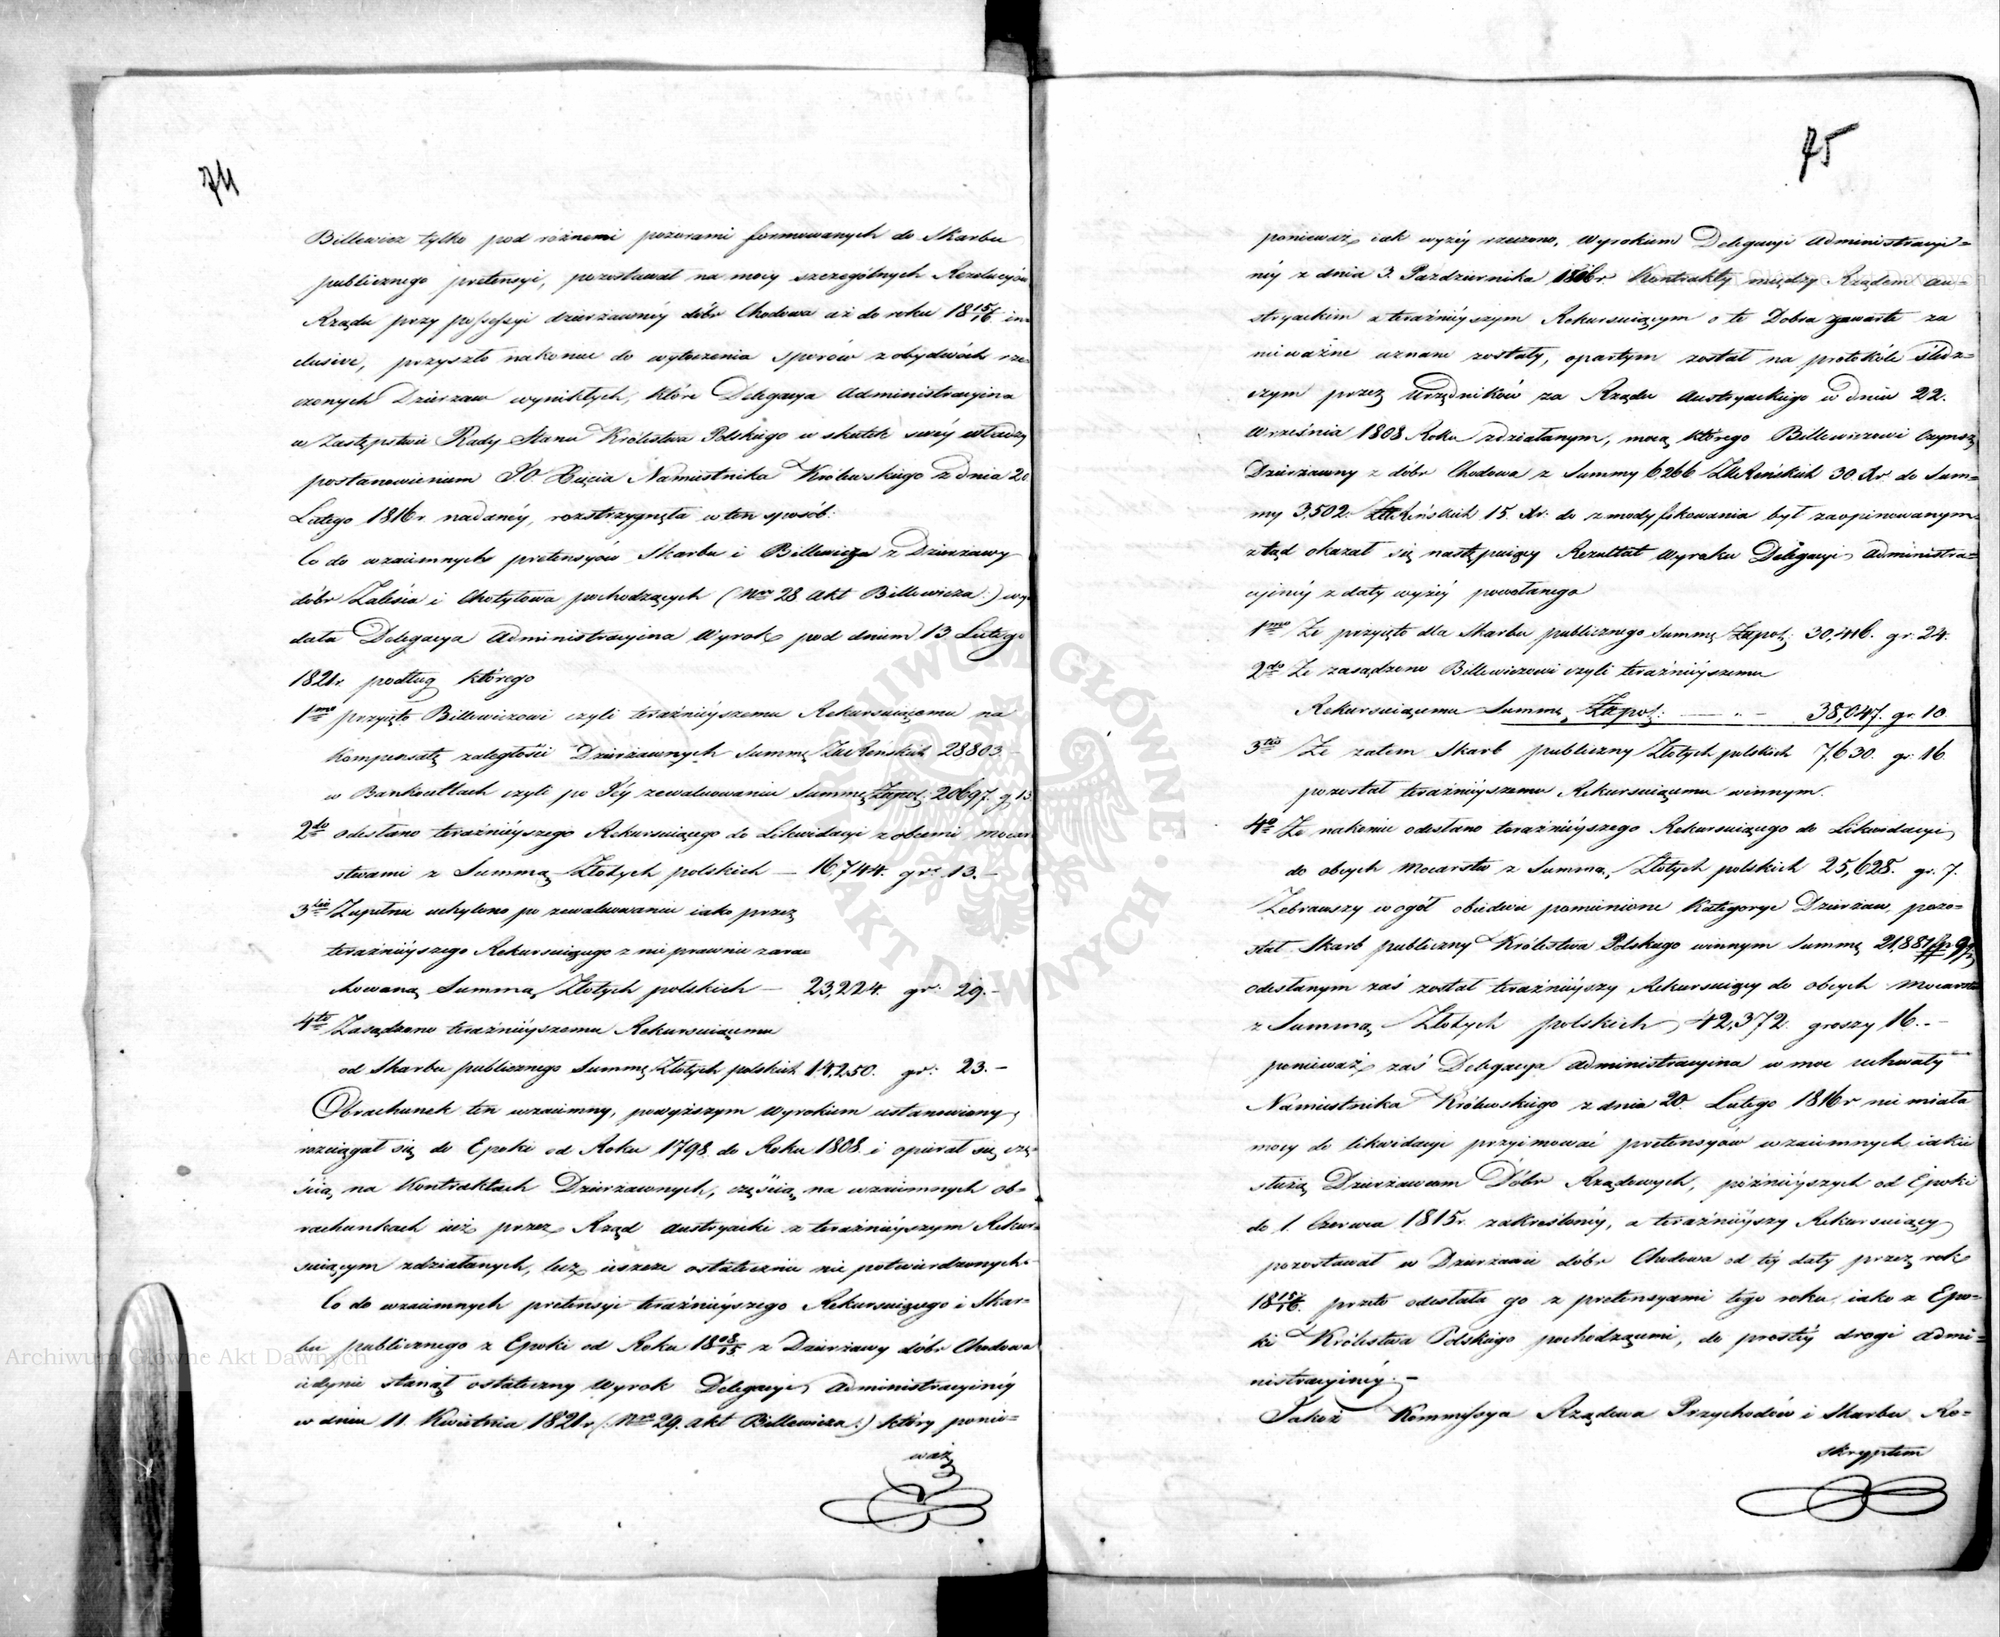 74
Billewicz tylko pod różnemi pozorami formowanych do Skarbu
publicznego pretensyi, pozostawał na mocy szczególnych Rezolucyów
Rządu przy possessyi dzierżawnéy dóbr Chodowa aż do roku 18 15/16 in=
clusive, przyszło nakoniec do wytoczenia sporów z obydwóch rze=
czonych Dzierzaw wynikłych, które Delegacya Administracyina
w Zastępstwie Rady Stanu Królestwa Polskiego w skutek swéy władzy
postanowieniem JO. Xięcia Namiestnika Królewskiego z dnia 20
Lutego 1816 r. nadanéy, rozstrzygnęła w ten sposób:
Co do wzaiemnych pretensyów Skarbu i Billewicza z Dzierżawy
dóbr Zalesia i Chotyłowa pochodzących (Nro 28 Akt Billewicza:) wy=
dała Delegacya Administracyina Wyrok pod dniem 13 Lutego
1821 r. podług którego
1mo przyięto Billewiczowi czyli teraźnieyszemu Rekursuiącemu na
Kompensatę zaległości Dzierżawnych Summę Złt Reńskich 28803.
w Bankocetlach czyli po Jéy zewaluowaniu Summę Złpol: 20697. g 13
2do odesłano teraźnieyszego Rekursuiącego do Likwidacyi z obcemi mocar=
stwami z Summą Złotych polskich — 16,744. gr. 13.—
3tio Zupełnie uchylono po zewaluowaniu iako przez
teraźnieyszego Rekursuiącego z nie prawnie zara=
chowaną Summą Złotych polskich — 23,224. gr: 29.—
4to Zasądzono teraźnieyszemu Rekursuiącemu
od Skarbu publicznego Summę Złotych polskich 14,250. gr: 23.—
Obrachunek ten wzaiemny, powyższym Wyrokiem ustanowiony,
rozciągał się do Epoki od Roku 1798 do Roku 1808 i opierał się czę=
ścią na Kontraktach Dzierżawnych, częścią na wzaiemnych ob=
rachunkach iuż przez Rząd Austryacki z teraźnieyszym Rekur=
suiącym zdziałanych, lecz ieszcze ostatecznie nie potwierdzonych.
Co do wzaiemnych pretensyi teraźnieyszego Rekursuiącego i Skar=
bu publicznego z Epoki od Roku 18 08/15 z Dzierżawy dóbr Chodowa
iedynie stanął ostateczny Wyrok Delegacyi Administracyinéy
w dniu 11 Kwietnia 1821 r. (:Nro 29. Akt Billewicza:) który ponie=
waż
75
ponieważ iak wyżéy rzeczono, Wyrokiem Delegacyi Administracyi=
néy z dnia 3. Pazdziernika 1816 r. Kontrakty między Rządem Au=
stryackim a teraźnieyszym Rekursuiącym o te Dobra zawarte za
nieważne uznane zostały, opartym został na protokóle śled=
czym przez Urzędników za Rządu Austryackiego w dniu 22.
Września 1808 Roku zdziałanym, mocą którego Billewiczowi Czynsz
Dzierżawny z dóbr Chodowa z Summy 6266 Złt Reńskich 30 Xr. do Sum=
my 3,502. Złt Reńskich 15. Xr. do zmodyfikowania był zaopinowanym
ztąd okazał się następuiący Rezultat Wyroku Delegacyi Administra=
cyinéy z daty wyżéy powołanego
1mo Że przyięto dla Skarbu publicznego Summę Złpol: 30,416. gr: 24.
2do Że zasądzono Billewiczowi czyli teraźnieyszemu
Rekursuiącemu Summę Złpol: — " — 38,047. gr. 10
3tio Że zatem Skarb publiczny Złotych polskich 7,630. gr: 16.
pozostał teraźnieyszemu Rekursuiącemu winnym.
4o Że nakoniec odesłano teraźnieyszego Rekursuiącego do Likwidacyi
do obcych Mocarstw z Summą, Złotych polskich 25,628. gr. 7.
Zebrawszy w ogół obiedwie pomienione Kategorye Dzierżaw, pozo=
stał Skarb publiczny Królestwa Polskiego winnym Summę 21,881
odesłanym zaś został teraźnieyszy Rekursuiący do obcych Mocarstw
z Summą Złotych polskich 42,372. groszy 16.—
ponieważ zaś Delegacya Administracyina w moc uchwały
Namiestnika Królewskiego z dnia 20. Lutego 1816 r nie miała
mocy do likwidacyi przyimować pretensyów wzaiemnych iakie
służą Dzierżawcom Dóbr Rządowych, późnieyszych od Epoki
do 1. Czerwca 1815 r. zakreślonéy, a teraźnieyszy Rekursuiący
pozostawał w Dzierżawie dóbr Chodowa od téy daty przez rok
18 15/16. przeto odesłała go z pretensyami tego roku, iako z Epo=
ki Królestwa Polskiego pochodzącemi, do prostéy drogi Admi=
nistracyinéy.—
Jakoż Kommissya Rządowa Przychodów i Skarbu Re=
skryptem
ARCHIWUM GŁÓWNE AKT DAWNYCH
Archiwum Główne Akt Dawnych